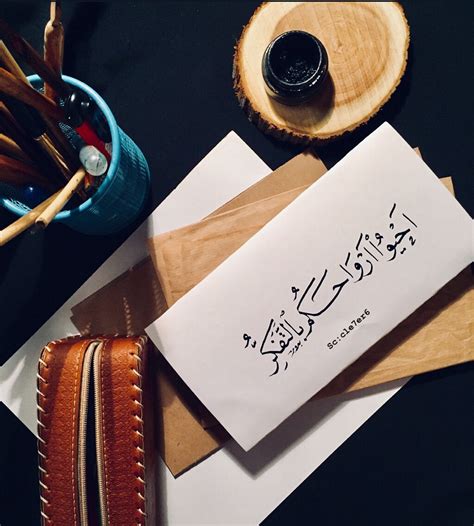 احيوا أرواحكم بالتفكر
Sc:cle7er6